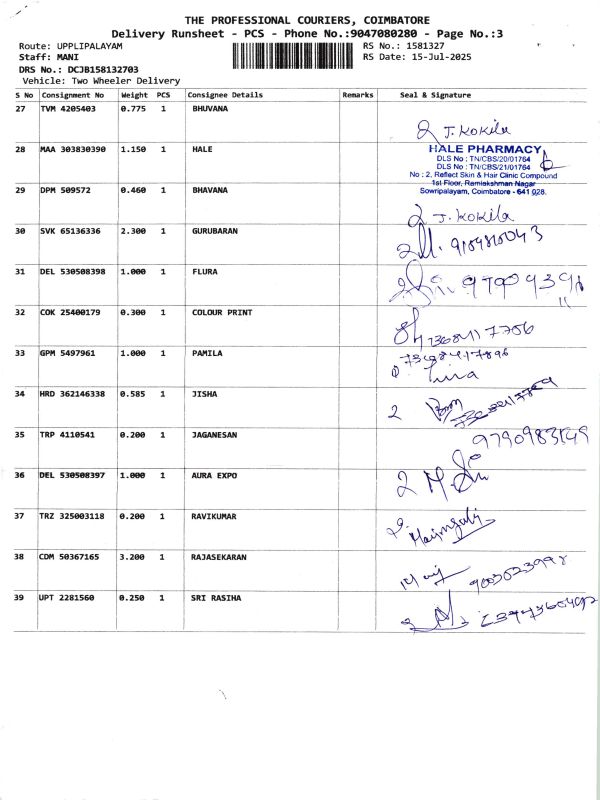 THE PROFESSIONAL COURIERS, COIMBATORE
Delivery Runsheet - PCS - Phone No.:9047080280 - Page No.:3
Route: UPPLIPALAYAM
RS No.: 1581327
Staff: MANI
RS Date: 15-Jul-2025
DRS No.: DCJB158132703
Vehicle: Two Wheeler Delivery
S No Consignment No Weight PCS Consignee Details Remarks Seal & Signature
27 TVM 4205403 0.775 1 BHUVANA
J. Kokila
28 MAA 303830390 1.150 1 HALE
HALE PHARMACY
DLS No : TN/CBS/20/01764
DLS No : TN/CBS/21/01764
No : 2, Reflect Skin & Hair Clinic Compound
1st Floor, Ramlakshman Nagar
Sowripalayam, Coimbatore - 641 028.
29 DPM 509572 0.460 1 BHAVANA
J. Kokila
30 SVK 65136336 2.300 1 GURUBARAN
31 DEL 530508398 1.000 1 FLURA
32 COK 25400179 0.300 1 COLOUR PRINT
33 GPM 5497961 1.000 1 PAMILA
34 HRD 362146338 0.585 1 JISHA
35 TRP 4110541 0.200 1 JAGANESAN
36 DEL 530508397 1.000 1 AURA EXPO
37 TRZ 325003118 0.200 1 RAVIKUMAR
38 CDM 50367165 3.200 1 RAJASEKARAN
39 UPT 2281560 0.250 1 SRI RASIHA